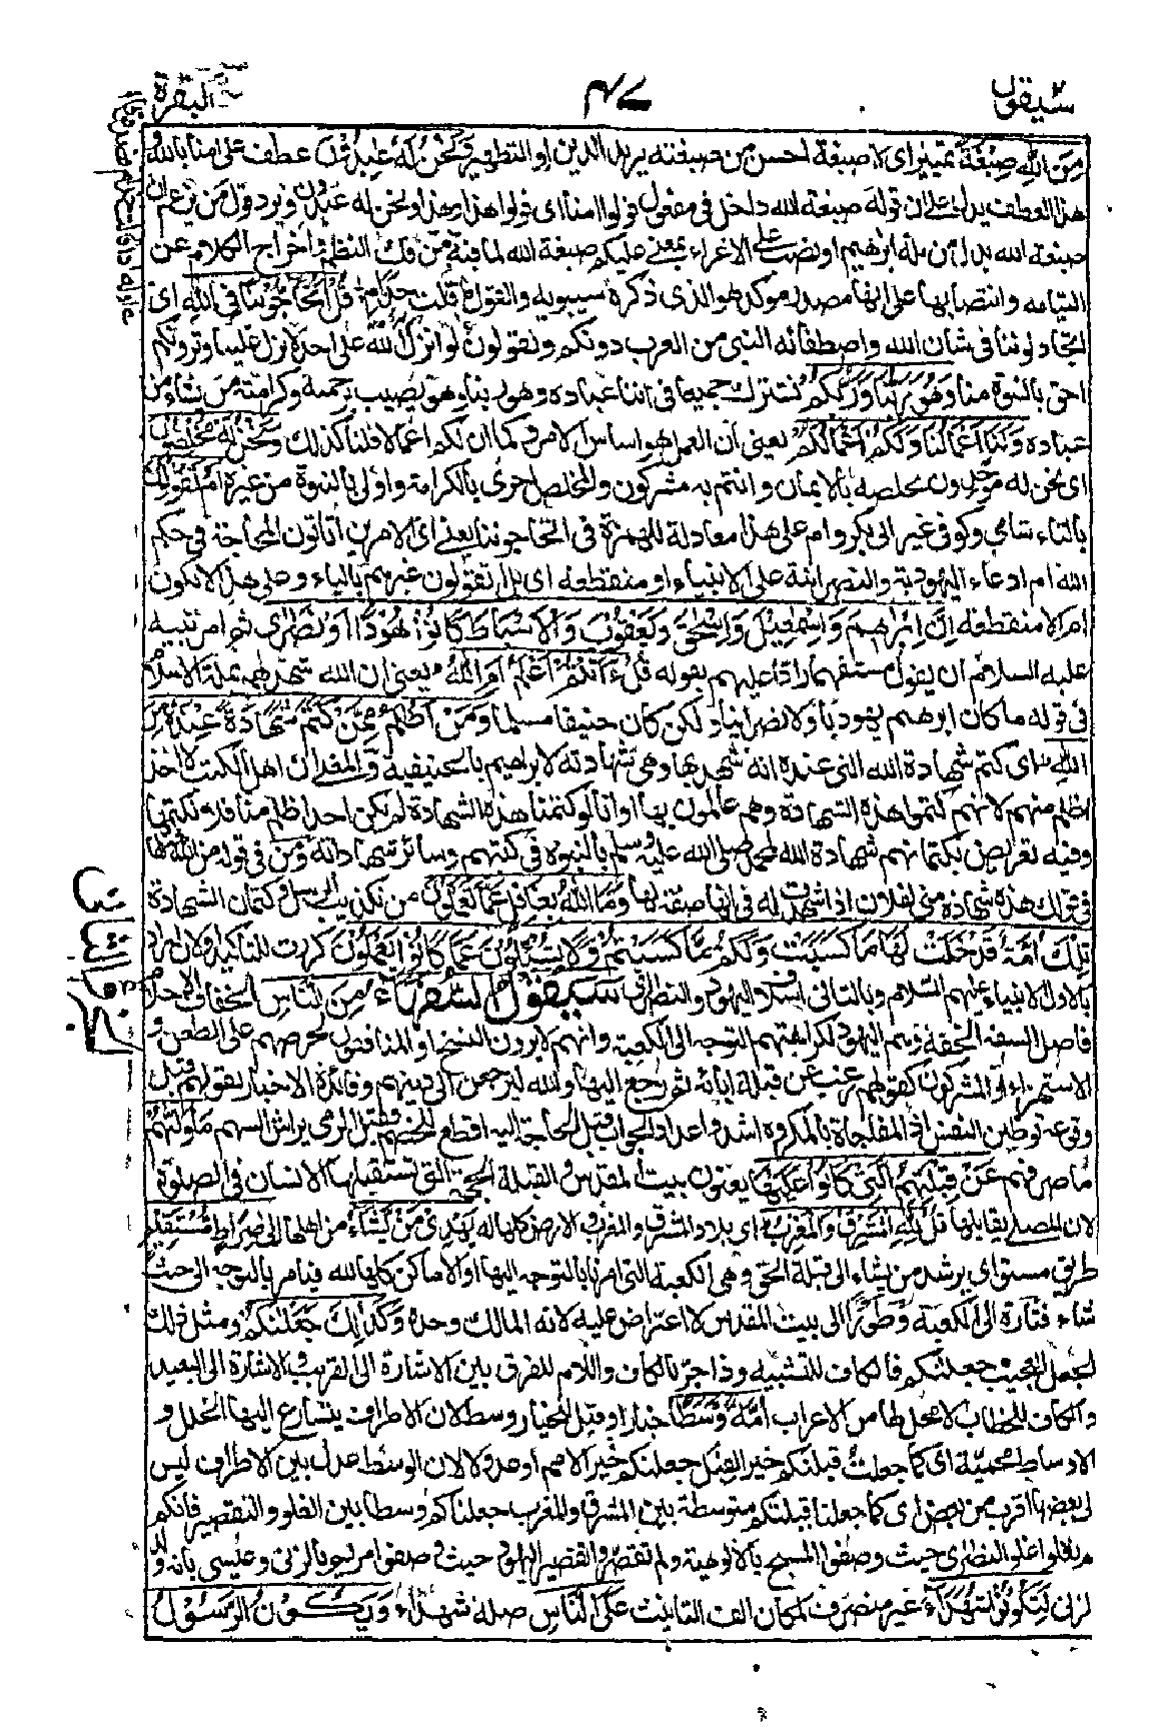 سيقول
٤٧
البقرة
مِنَ اللّٰهِ صِبْغَةً تمييز اى لا صبغة احسن من صبغته يريد الدين او التطهير وَّنَحْنُ لَهٗ عٰبِدُوْنَ عطف على امنا بالله و
هذا العطف يدل على ان قوله صبغة الله داخل فى مفعول قولوا امنا اى قولوا هذا وهذا ونحن له عبدون ويرد قول من زعم ان
صبغة الله بدل من ملة ابرهيم او نصب على الاغراء بمعنى عليكم صبغة الله لما فيه من فك النظم واخراج الكلام عن
التيامه وانتصابها على انها مصدر موكد هو الذى ذكره سيبويه والقول ما قلت حذام قُلْ اَتُحَآجُّوْنَنَا فِى اللّٰهِ اى
اتجادلوننا فى شان الله واصطفائه النبى من العرب دونكم وتقولون لو انزل الله على احد لانزل علينا وترونكم
احق بالنبوة منا وَهُوَ رَبُّنَا وَرَبُّكُمْ نشترك جميعا فى اننا عباده وهو ربنا وهو يصيب برحمته وكرامته من يشاء من
عباده وَلَنَا اَعْمَالُنَا وَلَكُمْ اَعْمَالُكُمْ يعنى ان العمل هو اساس الامر وكما ان لكم اعمالا فلنا كذلك وَنَحْنُ لَهٗ مُخْلِصُوْنَ
اى نحن له موحدون مخلصه بالايمان وانتم به مشركون والمخلص احرى بالكرامة واولى بالنبوة من غيره اَمْ تَقُوْلُوْنَ
بالتاء شامى وكوفى غير ابى بكر وام على هذا معادلة للهمزة فى اتحاجوننا يعنى اى الامرين اتاتون المحاجة فى حكم
الله ام ادعاء اليهودية والنصرانية على الانبياء او منقطعة اى بل اتقولون غيرهم بالياء وعلى هذا لا تكون
ام الا منقطعة اِنَّ اِبْرٰهِيْمَ وَاِسْمٰعِيْلَ وَاِسْحٰقَ وَيَعْقُوْبَ وَالْاَسْبَاطَ كَانُوْا هُوْدًا اَوْ نَصٰرٰى ثم امر نبيه
عليه السلام ان يقول مستفهما رادا عليهم بقوله قُلْ ءَاَنْتُمْ اَعْلَمُ اَمِ اللّٰهُ يعنى ان الله شهد لهم بملة الاسلام
فى قوله ما كان ابرهيم يهوديا ولا نصرانيا ولكن كان حنيفا مسلما وَمَنْ اَظْلَمُ مِمَّنْ كَتَمَ شَهَادَةً عِنْدَهٗ مِنَ
اللّٰهِ اى كتم شهادة الله التى عنده انه شهد بها وهى شهادته لابراهيم بالحنيفية والمعنى ان اهل الكتب لا احد
اظلم منهم لانهم كتموا هذه الشهادة وهم عالمون بها او انا لو كتمنا هذه الشهادة لم يكن احد اظلم منا فلا نكتمها
وفيه تعريض بكتمانهم شهادة الله لمحمد صلى الله عليه وسلم بالنبوة فى كتبهم وسائر شهاداته ومن فى قوله من الله كما
فى قولك هذه شهادة منى لفلان اذا شهدت له فى انها صفة لها وَمَا اللّٰهُ بِغَافِلٍ عَمَّا تَعْمَلُوْنَ من تكذيب الرسل وكتمان الشهادة
تِلْكَ اُمَّةٌ قَدْ خَلَتْ لَهَا مَا كَسَبَتْ وَلَكُمْ مَّا كَسَبْتُمْ وَلَا تُسْئَلُوْنَ عَمَّا كَانُوْا يَعْمَلُوْنَ كررت للتاكيد او لان المراد
بالاول الانبياء عليهم السلام وبالثانى اسلاف اليهود والنصارى سَيَقُوْلُ السُّفَهَآءُ مِنَ النَّاسِ الخفاف الاحلام
فاصل السفه الخفة وهم اليهود لكراهتهم التوجه الى الكعبة وانهم لا يرون النسخ او المنافقون لحرصهم على الطعن و
الاستهزاء او المشركون كقولهم رغب عن قبلة ابائه ثم رجع اليها والله ليرجعن الى دينهم وفائدة الاخبار بقولهم قبل
وقوعه توطين النفس اذ المفاجاة بالمكروه اشد واعداد الجواب قبل الحاجة اليه اقطع للخصم فقبل الرمى يراش السهم مَا وَلّٰهُمْ
ما صرفهم عَنْ قِبْلَتِهِمُ الَّتِىْ كَانُوْا عَلَيْهَا يعنون بيت المقدس والقبلة الجهة التى يستقبلها الانسان فى الصلوة
لان المصلى يقابلها قُلْ لِّلّٰهِ الْمَشْرِقُ وَالْمَغْرِبُ اى بلاد المشرق والمغرب والارض كلها له يَهْدِىْ مَنْ يَّشَآءُ من اهلها اِلٰى صِرَاطٍ مُّسْتَقِيْمٍ
طريق مستو اى يرشد من يشاء الى قبلة الحق وهى الكعبة التى امرنا بالتوجه اليها او الاماكن كلها لله فيامر بالتوجه الى حيث
شاء فتارة الى الكعبة وطورا الى بيت المقدس لا اعتراض عليه لانه المالك وحده وَكَذٰلِكَ جَعَلْنٰكُمْ ومثل ذلك
الجعل العجيب جعلنكم فالكاف للتشبيه وذا جر بالكاف واللام للفرق بين الاشارة الى القريب والاشارة الى البعيد
والكاف للخطاب لا محل لها من الاعراب اُمَّةً وَّسَطًا خيارا وقيل للخيار وسط لان الاطراف يتسارع اليها الخلل و
الاوساط محمية اى كما جعلت قبلتكم خير القبل جعلنكم خير الامم او عدولا لان الوسط عدل بين الاطراف ليس
الى بعضها اقرب من بعض اى كما جعلنا قبلتكم متوسطة بين المشرق والمغرب جعلناكم وسطا بين الغلو والتقصير فانكم
لم تغلوا غلو النصارى حيث وصفوا المسيح بالالوهية ولم تقصروا تقصير اليهود حيث وصفوا مريم بالزنى وعيسى بانه ولد
الزنى لِّتَكُوْنُوْا شُهَدَآءَ غير منصرف لمكان الف التانيث عَلَى النَّاسِ صلة شهداء وَيَكُوْنَ الرَّسُوْلُ
الجزء الثانى